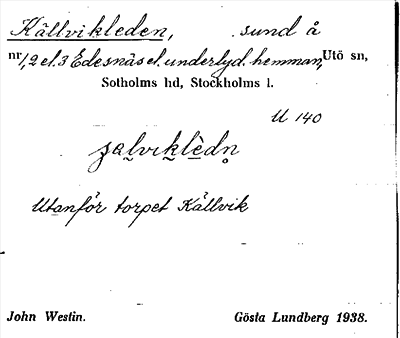 Källvikleden, sund å
nr 1, 2 el. 3 Edesnäs el. underlyd. hemman, Utö sn,
Sotholms hd, Stockholms l.
U 140
Utanför torpet Källvik
John Westin. Gösta Lundberg 1938.